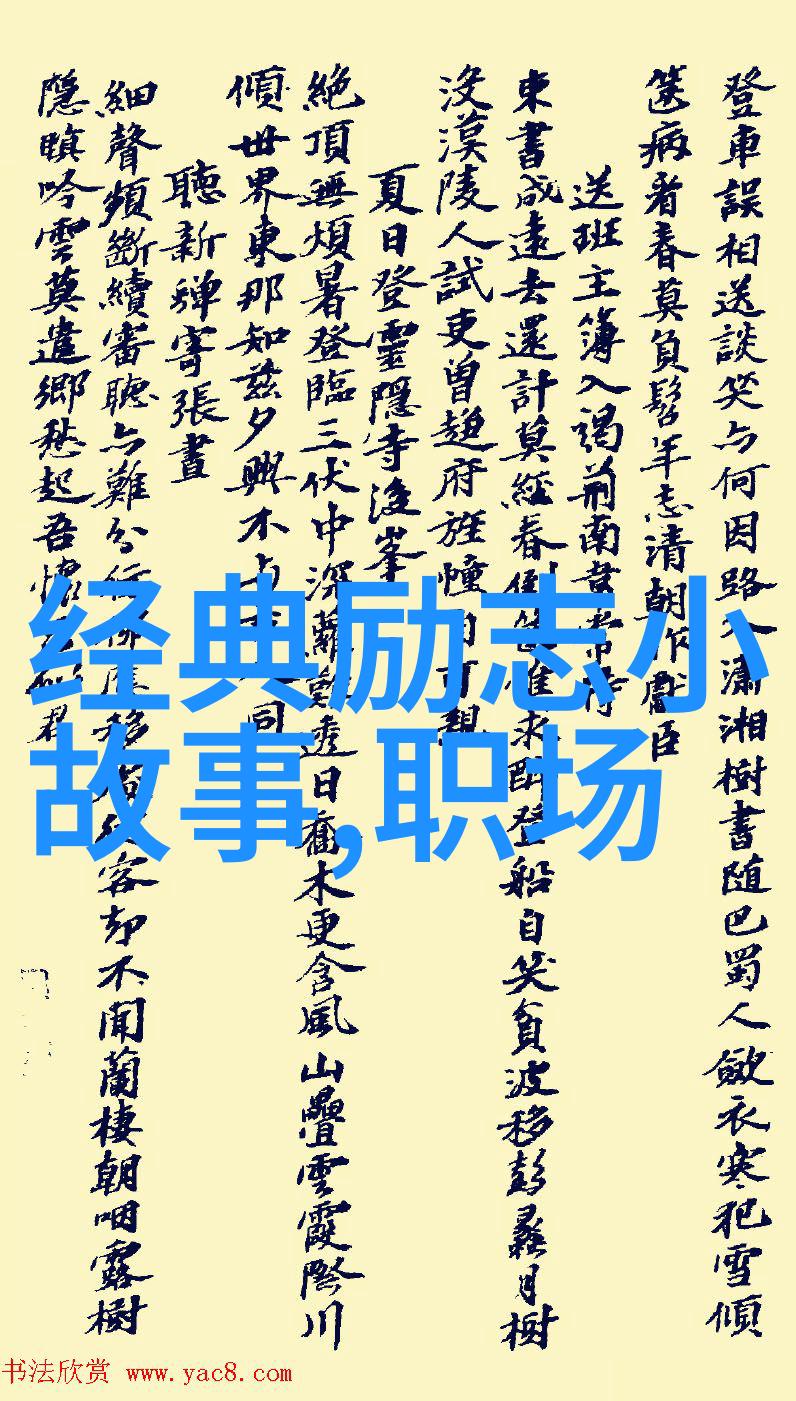 登車誤相送談笑亦何因路入瀟湘樹書隨巴蜀人斂衣寒犯雪傾
篋病看春莫負髫年志清朝作獻臣
送班主簿入謁荊南韋常侍
東書成遠去還計莫經春倒 惟求 登船自笑貧波移彭蠡月樹
沒漢陵人試吏曾趨府旌幢自可親
夏日登靈隱寺後峯
絕頂無煩暑登臨三伏中深蘿 透日喬木更含風山疊雲霞際川
傾世界東那知茲夕興不與 同
聽新蟬寄張晝
細聲頻斷續審聽亦難分 移 客却不聞蘭棲朝咽露樹
隱暝吟雲莫遣鄉愁起吾懷 君
经典励志小
故事,职场
书法欣赏 www.yac8.com